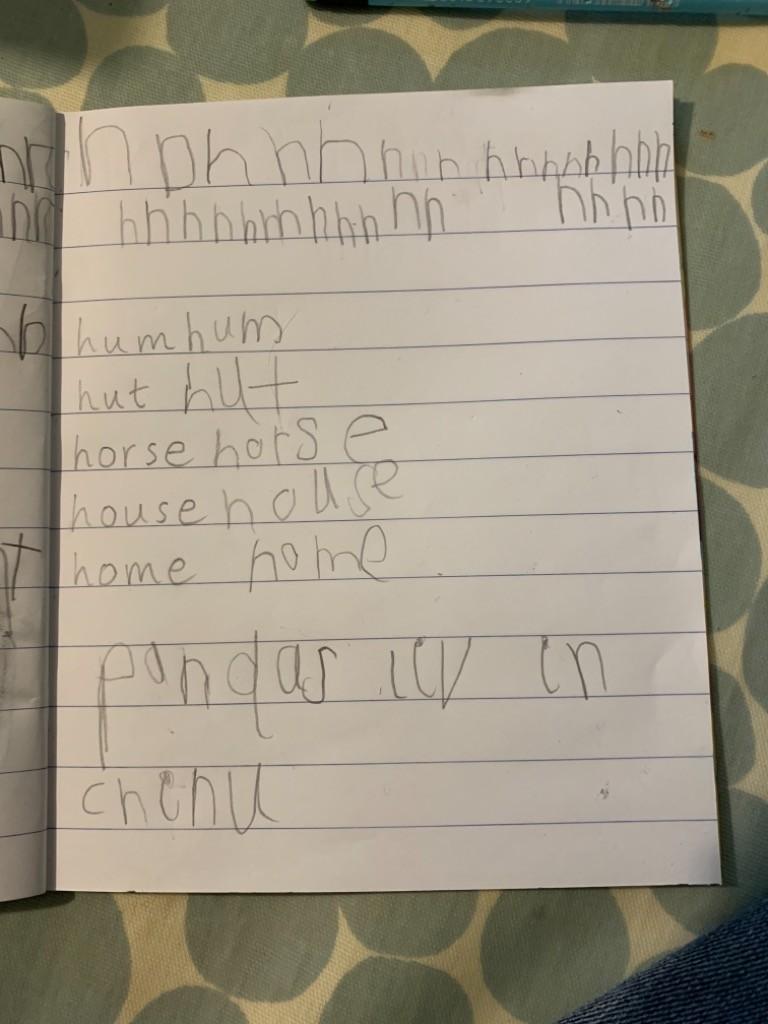 h n h h h h n n h h h h h h h h
h h h h h m h h h h h h h h h h
hum hum
hut hut
horse horse
house house
home home
pandas liv in
chenu